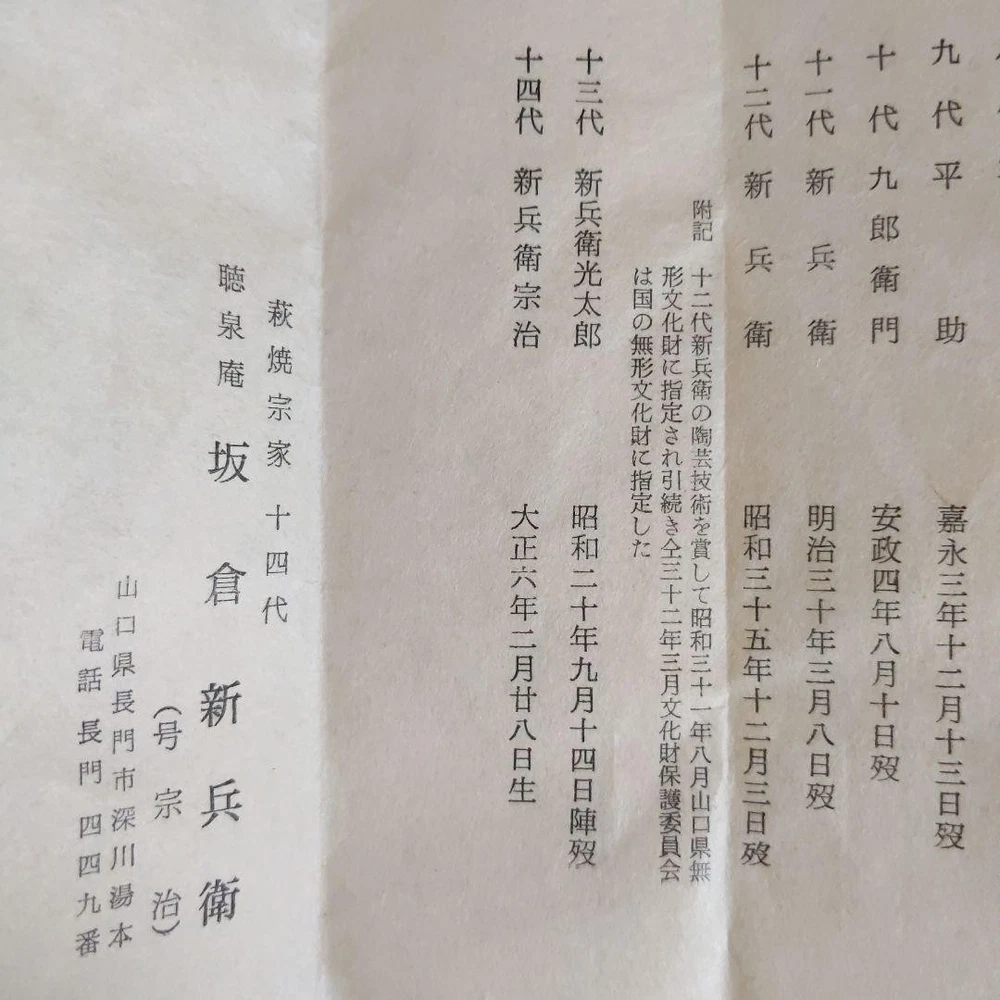 九代 平助 嘉永三年十二月十三日歿
十代 九郎衛門 安政四年八月十日歿
十一代 新兵衛 明治三十年三月八日歿
十二代 新兵衛 昭和三十五年十二月三日歿
附記 十二代新兵衛の陶芸技術を賞して昭和三十一年八月山口県無
形文化財に指定され引続き仝三十二年三月文化財保護委員会
は国の無形文化財に指定した
十三代 新兵衛光太郎 昭和二十年九月十四日陣歿
十四代 新兵衛宗治 大正六年二月廿八日生
萩焼宗家 十四代
聴泉庵 坂倉新兵衛
(号宗治)
山口県長門市深川湯本
電話 長門 四四九番